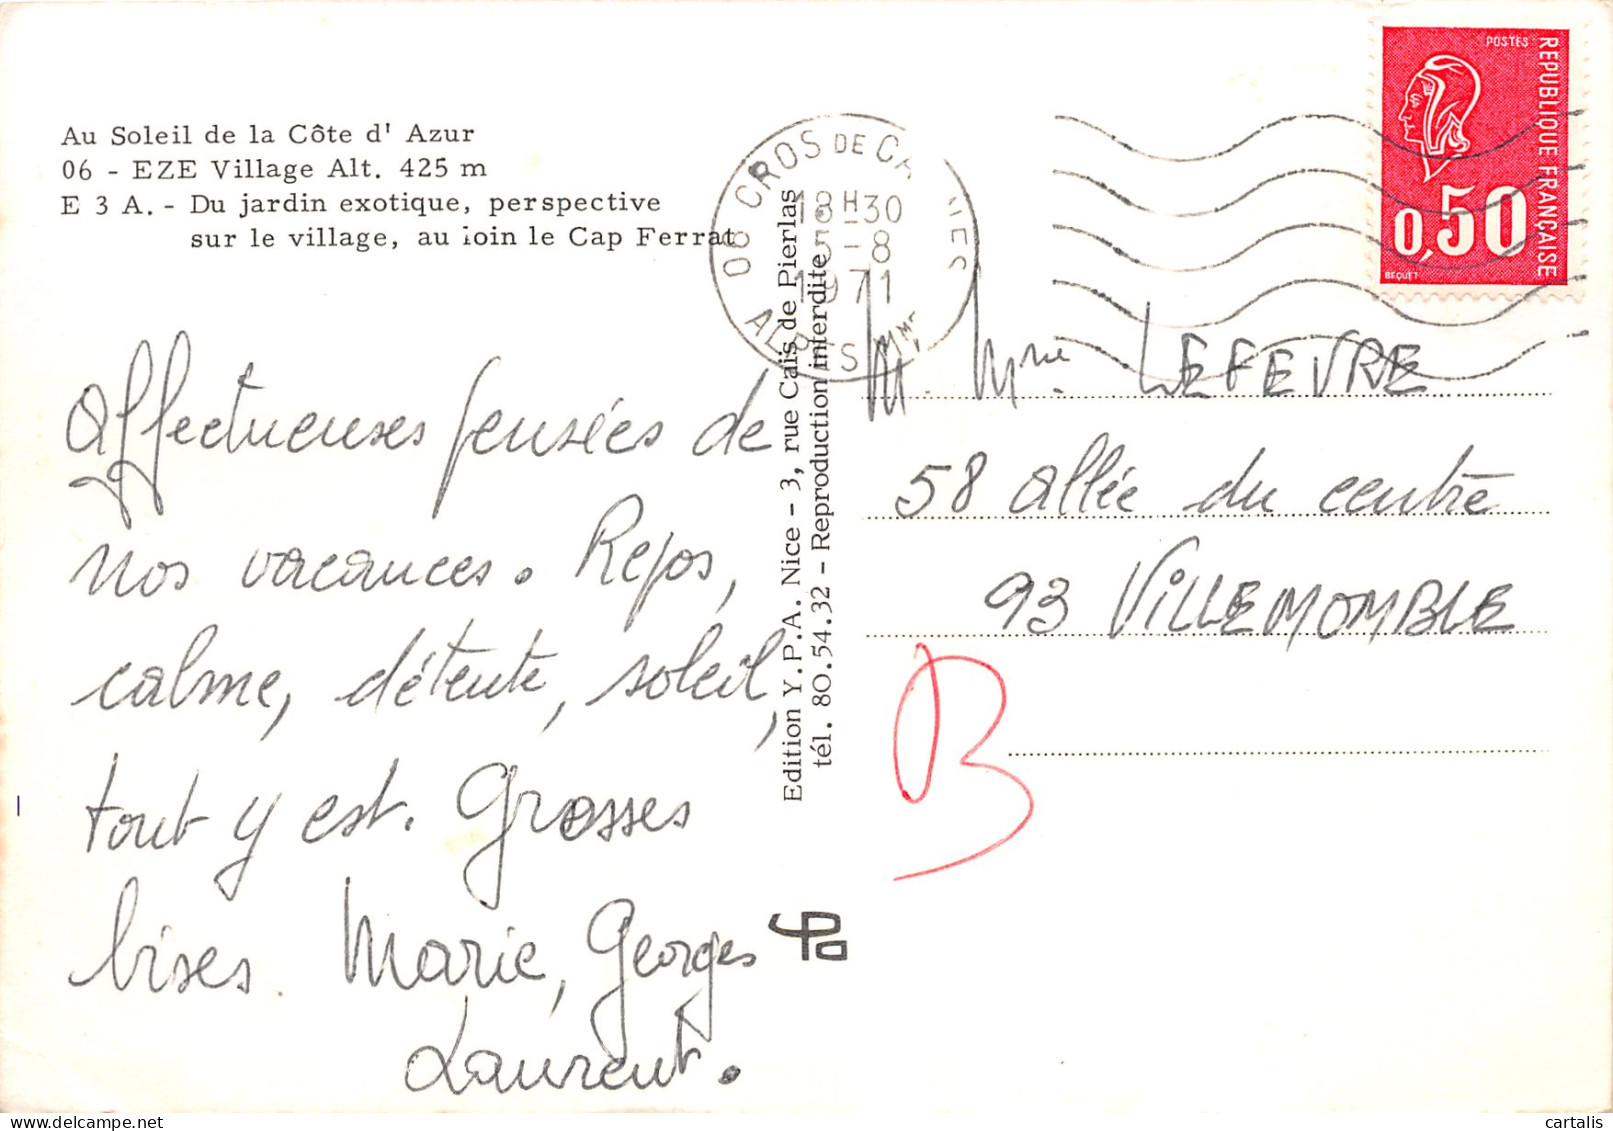 Au Soleil de la Côte d' Azur
06 - EZE Village Alt. 425 m
E 3 A. - Du jardin exotique, perspective
sur le village, au loin le Cap Ferrat
Affectueuses pensées de
nos vacances. Repos,
calme, détente, soleil,
tout y est. Grosses
bises. Marie, Georges
Laurent.
Edition Y.P.A. Nice - 3, rue Caïs de Pierlas
tél. 80.54.32 - Reproduction interdite.
06 CROS DE CA NES
18H30
5-8
1971
ALPES MMES
POSTES
REPUBLIQUE FRANÇAISE
0,50
BEQUET
M. Mme. LEFEVRE
58 allée du centre
93 VILLEMOMBLE
B
cartalis